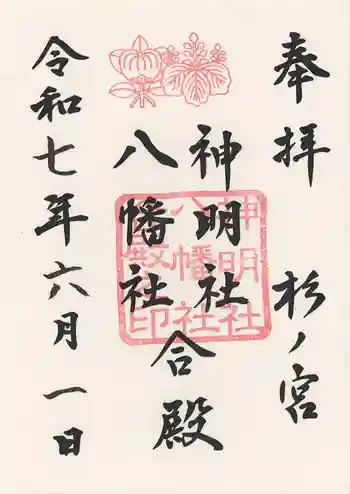 奉拝 杉ノ宮
神明社
八幡社
合殿
令和七年六月一日
神明社
八幡社